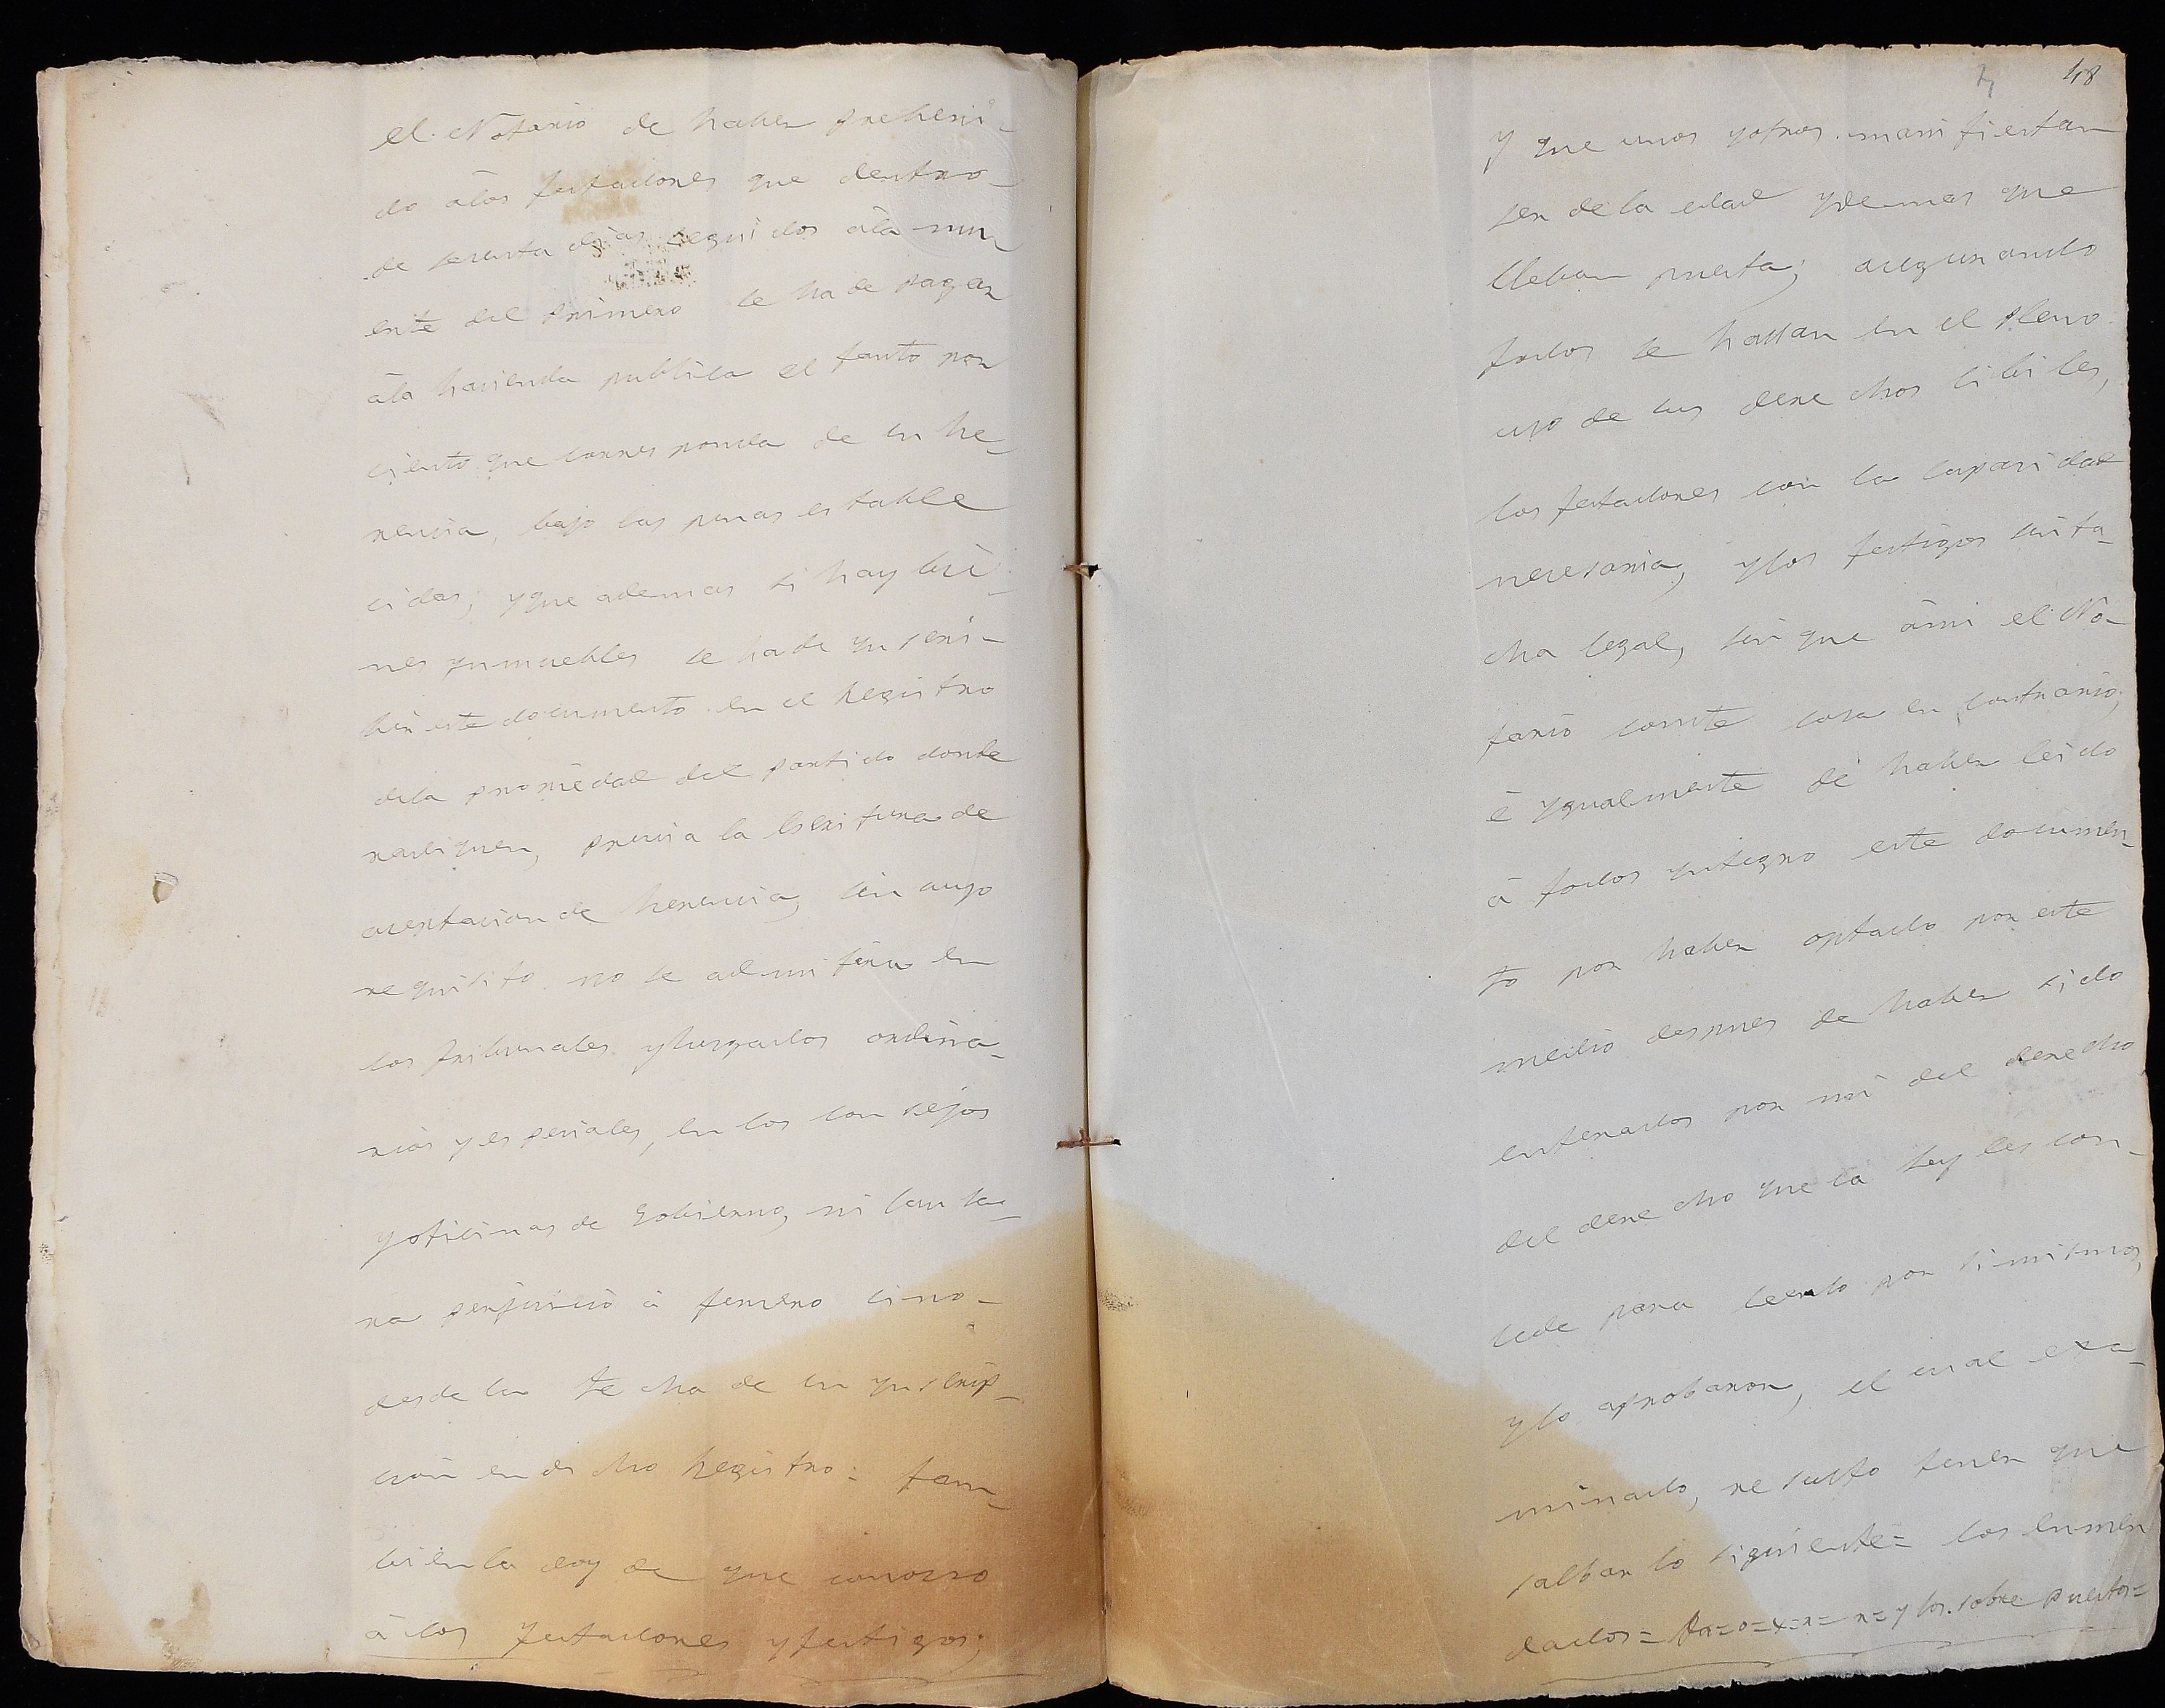 el Notario de haber preheni-
do álos testadores que dentro
de sesenta dias seguidos ála mu-
erte del primero se ha de pagar
ála hacienda publica el tanto por
ciento que corresponda de su he-
rencia, bajo las penas estable
cidas; y que ademas si hay bie-
nes ynmuebles se ha de ynscri-
bir este documento en el Registro
dela propiedad del partido donde
radiquen, previa la Escritura de
aceptacion de herencia, sin cuyo
requisito no se admitira en
los Tribunales y Juzgados ordina-
rios y especiales, en los consejos
y oficinas de Gobierno, ni causa-
ra perjuicio á tercero sino
desde la fecha de su ynscrip-
cion en dicho Registro: tam-
bien la doy de que conozco
á los testadores y testigos;
48
y que unos y otros manifiestan
ser de la edad y demas que
lleban puesta; asegurando
todos se hallan en el pleno
uso de sus derechos cibiles,
los testadores con la capacidad
necesaria, y los testigos con la
dha legal, sin que á mi el No-
tario conste cosa en contrario;
é ygualmente de haber leido
á todos yntegro este documen-
to por haber optado por este
medio despues de haber sido
enterados por mi del derecho
del derecho que la Ley les con-
cede para leerlo por si mismos,
y lo aprobaron, el cual exa-
minado, resulto tener que
salbar lo siguiente= los enmen
dados= = o = x = n = y los sobre puestos=